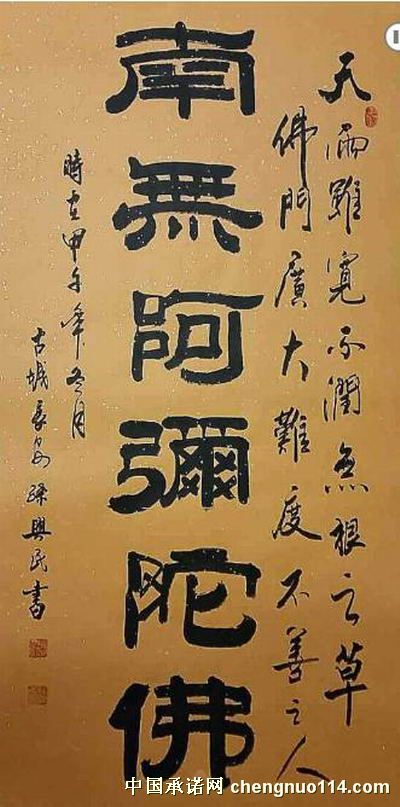 天雨雖寬不潤無根之草
佛門廣大難度不善之人
南無阿彌陀佛
時在甲午年冬月
古城長安孫興民書
中国承诺网 chengnuo114.com